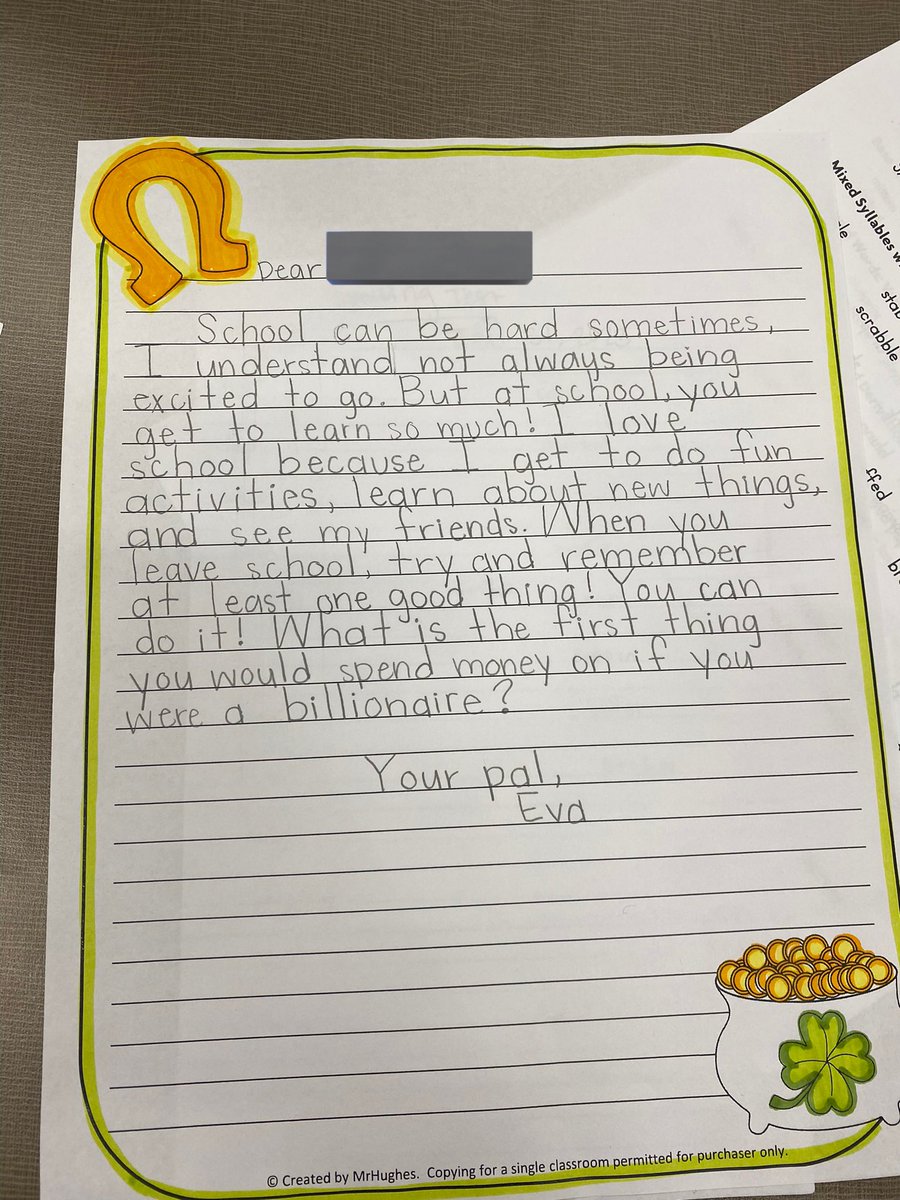 Dear
School can be hard sometimes,
I understand not always being
excited to go. But at school, you
get to learn so much! I love
school because I get to do fun
activities, learn about new things,
and see my friends. When you
leave school, try and remember
at least one good thing! You can
do it! What is the first thing
you would spend money on if you
were a billionaire?
Your pal,
Eva
© Created by MrHughes. Copying for a single classroom permitted for purchaser only.
Mixed Syllables w
stab
scrabble
ffed